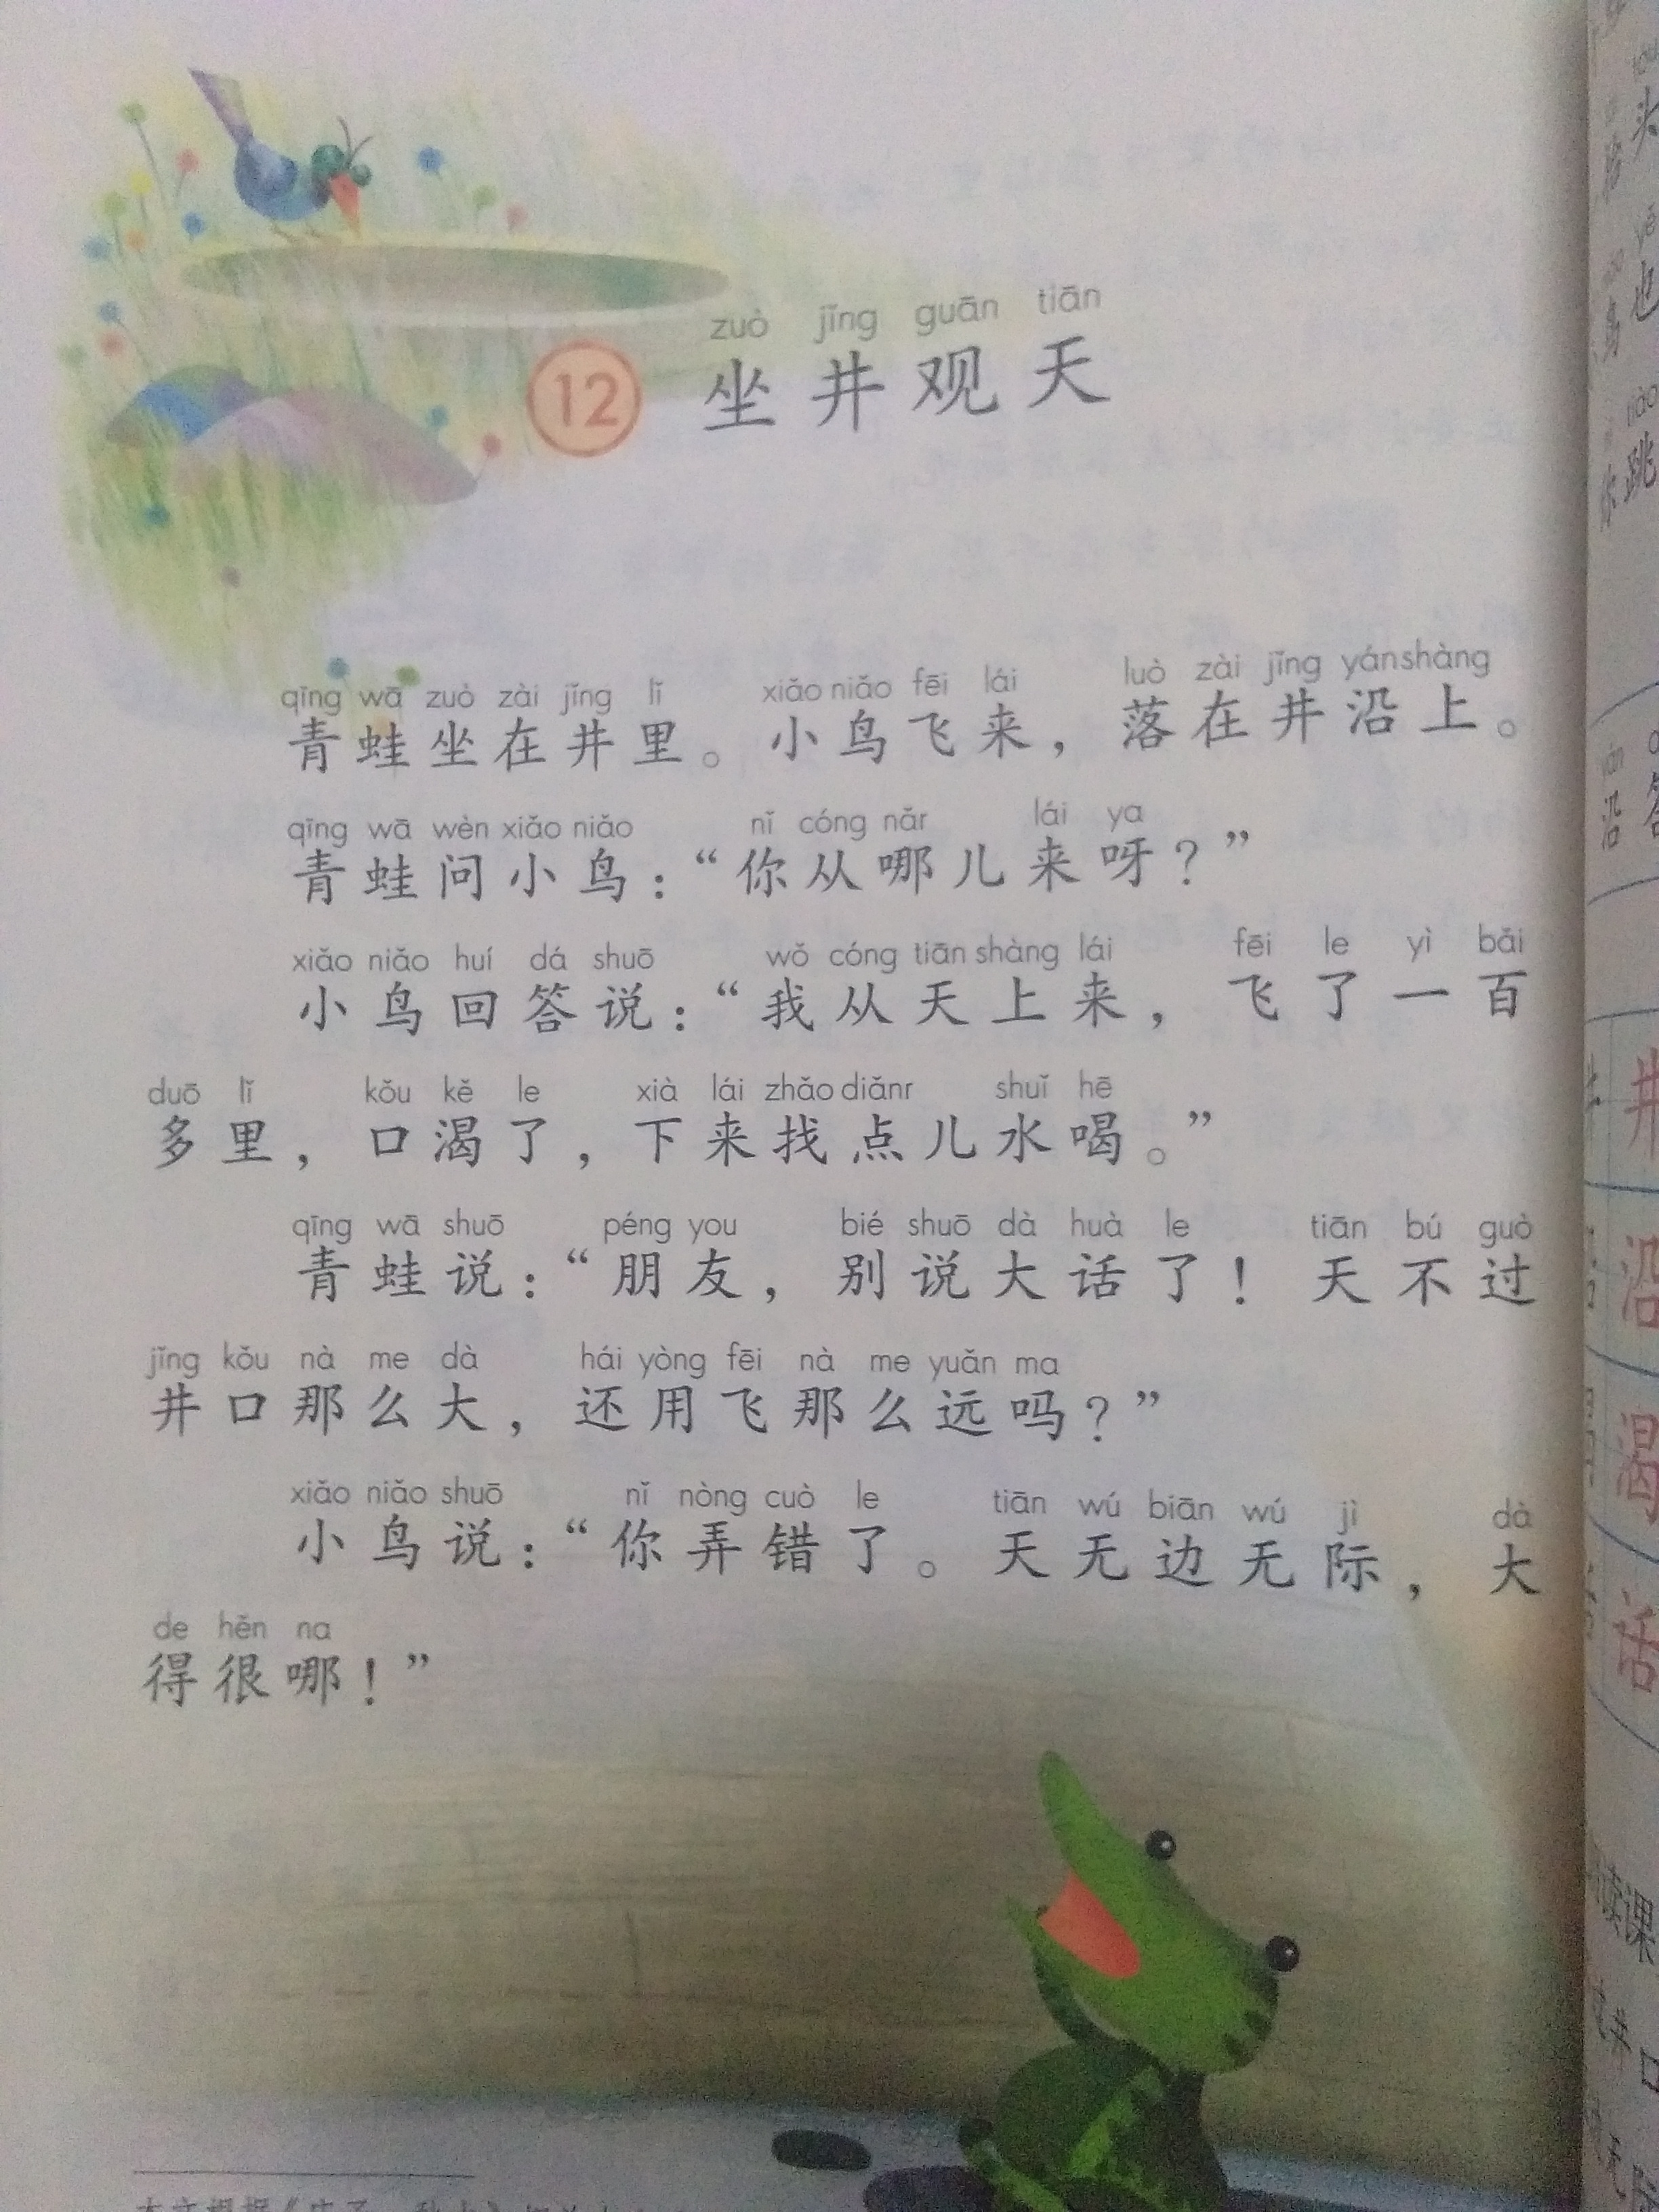 zuò jǐng guān tiān
12 坐井观天
qīng wā zuò zài jǐng lǐ xiǎo niǎo fēi lái luò zài jǐng yán shàng
青蛙坐在井里。小鸟飞来，落在井沿上。
qīng wā wèn xiǎo niǎo nǐ cóng nǎr lái ya
青蛙问小鸟：“你从哪儿来呀？”
xiǎo niǎo huí dá shuō wǒ cóng tiān shàng lái fēi le yì bǎi
小鸟回答说：“我从天上来，飞了一百
duō lǐ kǒu kě le xià lái zhǎo diǎnr shuǐ hē
多里，口渴了，下来找点儿水喝。”
qīng wā shuō péng you bié shuō dà huà le tiān bú guò
青蛙说：“朋友，别说大话了！天不过
jǐng kǒu nà me dà hái yòng fēi nà me yuǎn ma
井口那么大，还用飞那么远吗？”
xiǎo niǎo shuō nǐ nòng cuò le tiān wú biān wú jì dà
小鸟说：“你弄错了。天无边无际，大
de hěn na
得很哪！”
头
yě
也
跳
沿
井
沿
渴
话
读课
井口